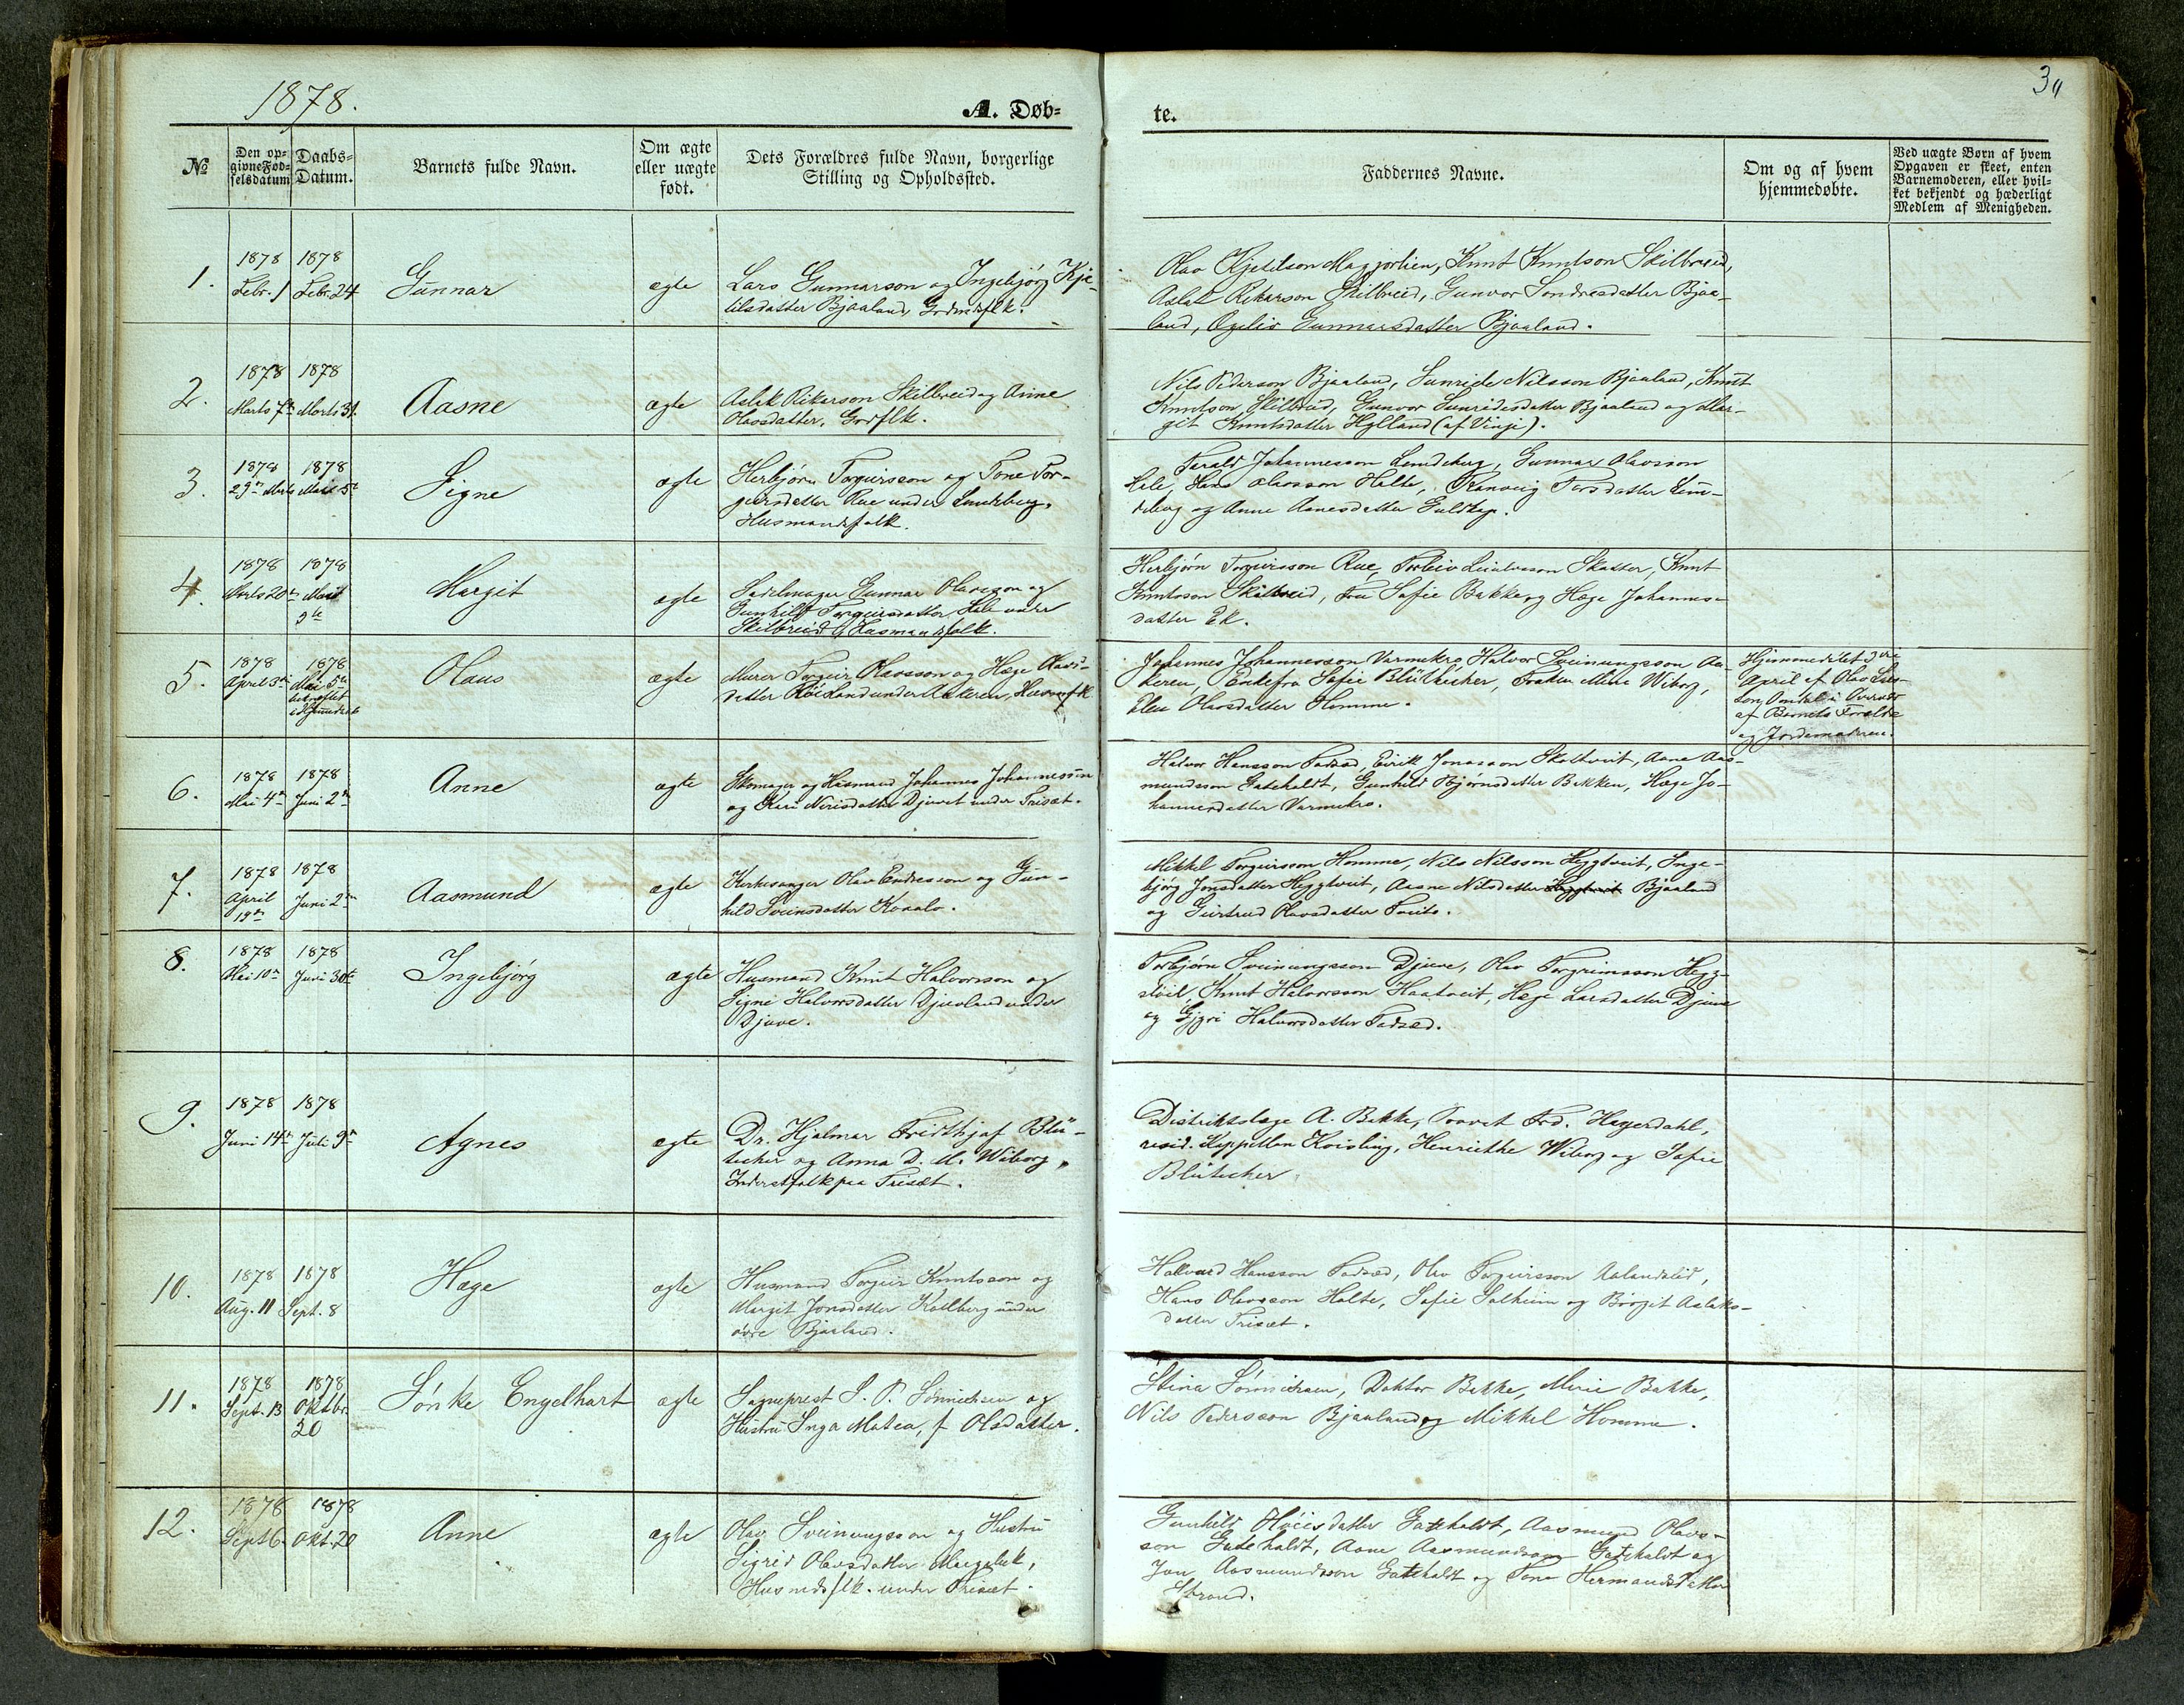 1878.
A. Døb-
te.
3
№
Den op-
givne Fød-
selsdatum
Daabs-
Datum.
Barnets fulde Navn.
Om ægte
eller uægte
født.
Dets Forældres fulde Navn, borgerlige
Stilling og Opholdssted.
Faddernes Navne.
Om og af hvem
hjemmedøbte.
Ved uægte Børn af hvem
Opgaven er skeet, enten
Barnemoderen, eller hvil-
ket bekjendt og hæderligt
Medlem af Menigheden.
1.
1878
Febr. 1
1878
Febr. 24
Gunnar
ægte
Lars Gunnarson og Ingebjørg Kje-
tilsdatter Bjaaland, Grdmdsflk.
Olav Kjetilson, Knut Knutson Skilbreid,
Aslak Rikarson Skilbreid, Gunvor Sondresdatter Bjaa-
land, Gunnarsdatter Bjaaland.
2.
1878
Marts 7de
1878
Marts 31.
Aasne
ægte
Aslak Rikarson Skilbreid og Anne
Olavsdatter, Grdflk.
Nils Pederson Bjaaland, Nilsson Bjaaland, Knut
Knutson Skilbreid, Gunvor datter Bjaaland og Mar-
git Knutsdatter Hylland (af Vinje).
3.
1878
29de Marts
1878
Mai 5te
Signe
ægte
Herbjørn Torgeirsson og Tone Tor-
geirsdatter Rue under Lundeberg,
Husmandsfolk.
Tarald Johannesson Lundeberg, Gunnar Olavsson
Hans Olavsson Holte, Ranveig Tarsdatter Lun-
deberg og Anne datter
4.
1878
Marts 20de
1878
Mai
Margit
ægte
Sadelmager Gunnar Olavsson og
Gunhild Torgeirsdatter under
Skilbreid, Husmandsfolk.
Herbjørn Torgeirsson Rue, Torleiv Skatter, Knut
Knutsson Skilbreid, Sofie Bakke og Hæge Johannes-
datter Ek.
5.
1878
April 3die
1878
Mai 5te
Olaus
ægte
Murer Torgeir Olavsson og Hæge Olavs-
datter Røiland under Aakeren, Husmfk
Johannes Johannesson Varmekro, Halvor Sveinungsson Aa-
keren, Enkefru Sofie Blütecher, Frøken Marie Wiborg,
Elen Olavsdatter Homme.
Hjemmedøbt 3die
April af Olav
af Barnets Forældre
og Jordemoderen.
6.
1878
Mai 4de
1878
Juni 2den
Anne
ægte
Skomager og Husmand Johannes Johannesson
og Nerisdatter Djuvet under Trisæt.
Halvor Hansson Tadsæd, Eirik Jonasson Skoltveit, Aane Aas-
mundsson Gateholdt, Gunhild Bjørnsdatter Bakken, Hæge Jo-
hannesdatter Varmekro.
7.
1878
April
19de
1878
Juni 2den
Aasmund
ægte
Kirkesanger Olav Endresson og Gun-
hild Sveinsdatter Kovalo.
Mikkel Torgeirsson Homme, Nils Nilsson Heggtveit, Inge-
bjørg Jonsdatter Heggtveit, Aasne Nilsdatter Heggtveit Bjaaland
og Gertrud Olavsdatter Tveito.
8.
1878
Mai 10de
1878
Juni 30te
Ingebjørg
ægte
Husmand Knut Halvorsson og
Signe Halvorsdatter Djuvland under
Djuve.
Torbjørn Sveinungsson Djuve, Olav Torgrimsson Hegg-
støil, Knut Halvorsson Haatveit, Hæge Larsdatter Djuve
og Gjyri Halvorsdatter Tadsæd.
9.
1878
Juni 14de
1878
Juli 9de
Agnes
ægte
Dr. Hjalmar Fridthjof Blü-
techer og Anna D. M. Wiborg,
Inderstfolk paa Trisæt.
Distriktslæge A. Bakke, Provst Frd. Heyerdahl,
resid. Kappellan Kvisling, Henriethe Wiborg og Sofie
Blütecher
10.
1878
Aug. 11
1878
Sept. 8
Hæge
ægte
Husmand Torgeir Knutsson og
Margit Jonsdatter Kallberg under
øvre Bjaaland.
Hallvard Hansson Tadsæd, Olav Torgeirsson Aalandslid,
Hans Olavsson Holte, Sofie Solheim og Børgit Aslaks-
datter Trisæt.
11.
1878
Sept. 13
1878
Oktbr.
20
Sønke Engelhart
ægte
Sogneprest S. P. Sønnichsen og
Hustru Inga Matea, f Olsdatter.
Stina Sønnichsen, Doktor Bakke, Marie Bakke,
Nils Pedersson Bjaaland og Mikkel Homme.
12.
1878
Sept 6.
1878
Okt. 20
Anne
ægte
Olav Sveinungsson og Hustru
Sigrid Olavsdatter
Husmdsflk. under Trisæt.
Gunhild datter Gateholdt, Aasmund Olavs-
son Gateholdt, Aane Aasmundsson Gateholdt og
Jon Aasmundsson Gateholdt og Tone Hermandsdatter
Strand.